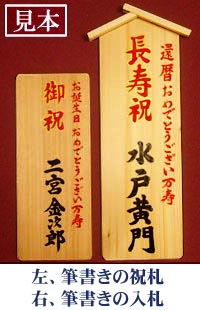 見本
還暦おめでとうござい万寿
長寿祝
水戸黄門
お誕生日おめでとうござい万寿
御祝
二宮金次郎
左、筆書きの祝札
右、筆書きの入札